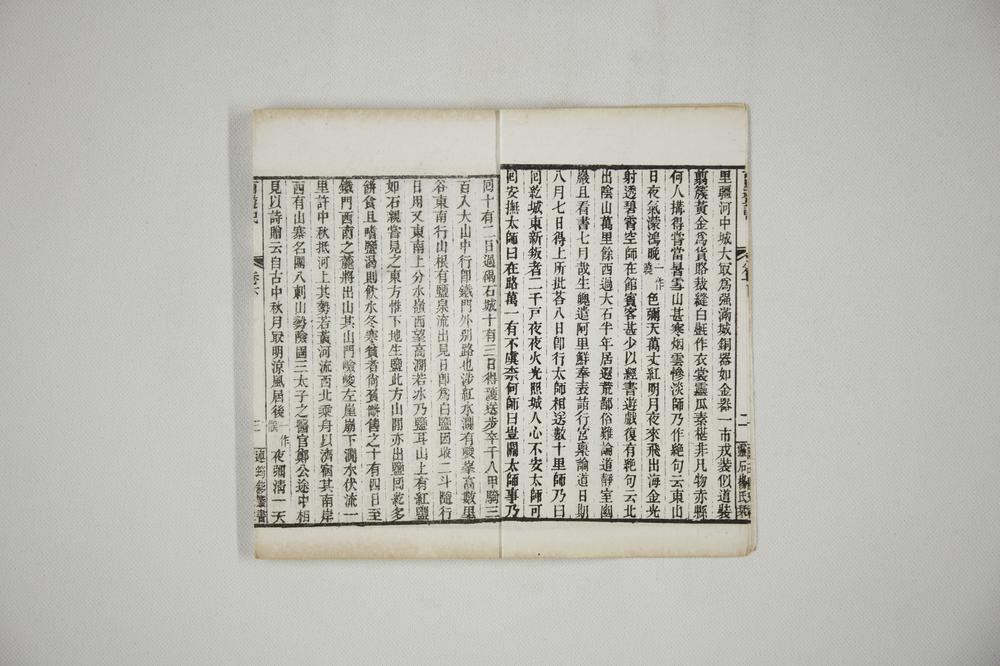 里疆河中城大最爲强滿城銅器如金器一市戎裝似道裝
剪簇黃金爲貨賂裁縫白㲲作衣裳靈瓜素椹非凡物赤縣
何人搆得嘗當暑雪山甚寒烟雲慘淡師乃作絶句云東山
日夜氣濛鴻晚一作曉色彌天萬丈紅明月夜來飛出海金光
射透碧霄空師在館賓客甚少以經書遊戲復有絶句云北
出陰山萬里餘西過大石半年居遐荒鄙俗難論道靜室幽
巖且看書七月哉生魄遣阿里鮮奉表詣行宮稟論道日期
八月七日得上所批荅八日卽行太師相送數十里師乃曰
回紇城東新叛者二千戸夜夜火光照城人心不安太師可
回安撫太師曰在路萬一有不虞柰何師曰豈關太師事乃
二
靈石楊氏
回十有二日過碣石城十有三日得護送步卒千人甲騎三
百入大山中行卽鐵門外别路也涉紅水澗有峻峯高數里
谷東南行山根有鹽泉流出見日卽爲白鹽因收二斗隨行
日用又東南上分水嶺西望高澗若冰乃鹽耳山上有紅鹽
如石親嘗見之東方惟下地生鹽此方山間亦出鹽回紇多
餅食且嗜鹽渴則飲水冬寒貧者尙負缾售之十有四日至
鐵門西南之麓將出山其山門嶮峻左崖崩下澗水伏流一
里許中秋抵河上其勢若黃河流西北乘舟以濟宿其南岸
西有山寨名團八剌山勢險固三太子之醫官鄭公途中相
見以詩贈云自古中秋月最明涼風屆後一作候夜彌清一天
卷下
三
連筠簃叢書